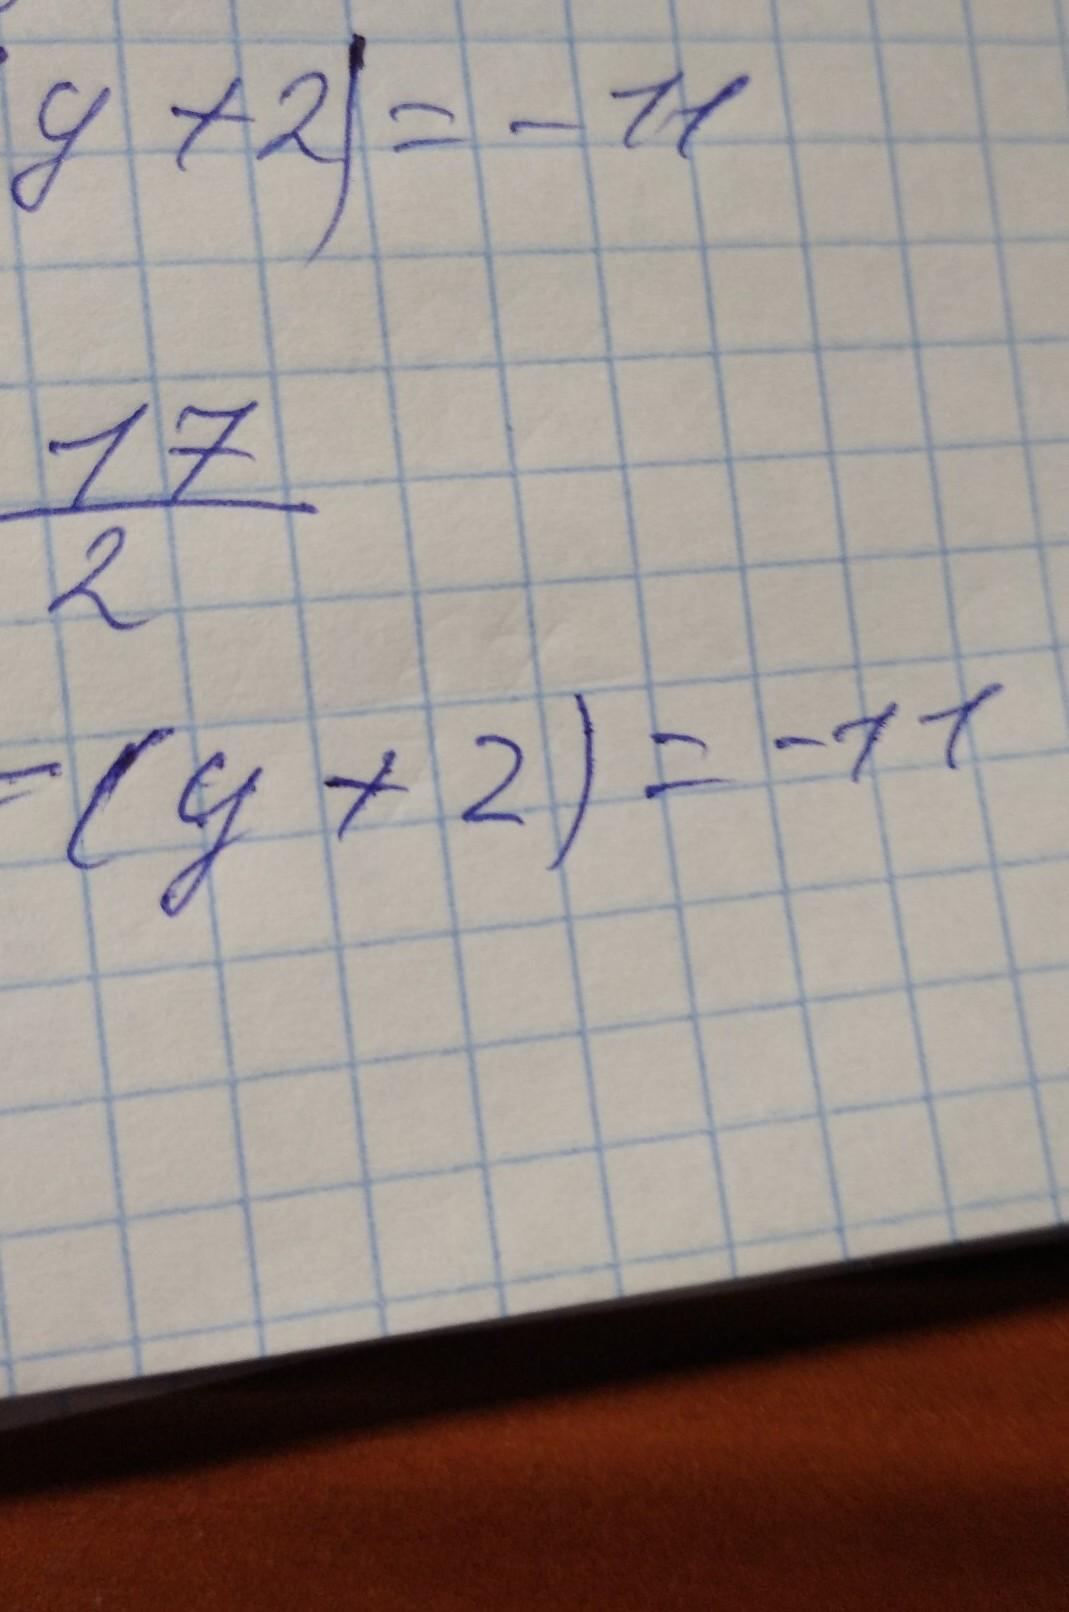 y + 2) = - 11
17
2
- (y + 2) = -11